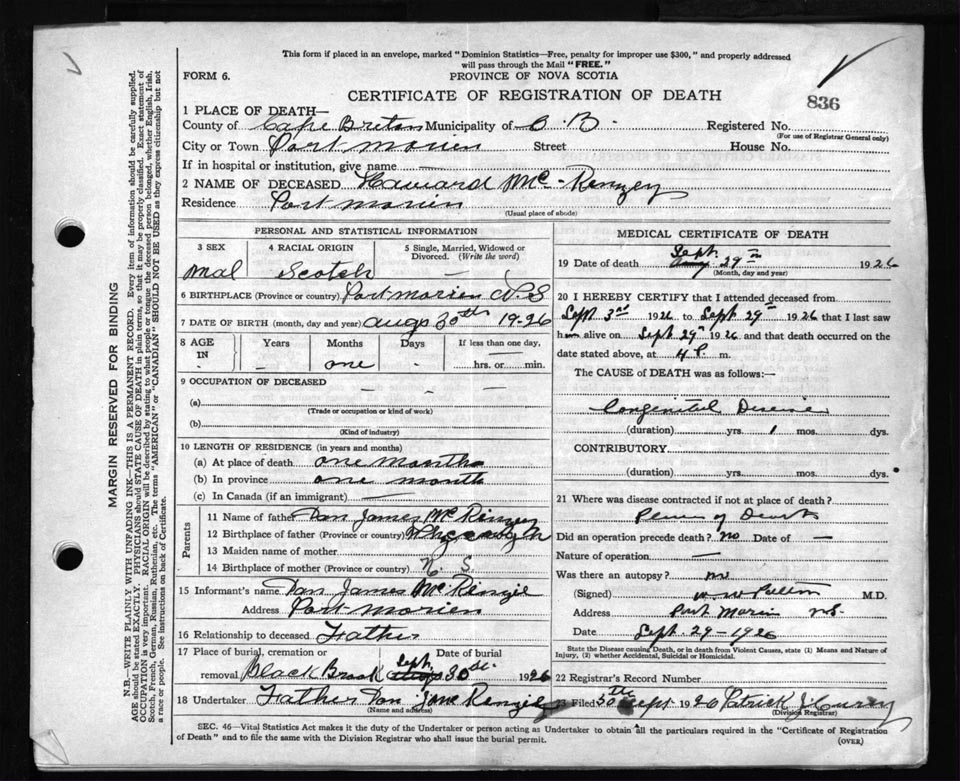 This form if placed in an envelope, marked "Dominion Statistics—Free, penalty for improper use $300," and properly addressed
will pass through the Mail "FREE."
FORM 6.
PROVINCE OF NOVA SCOTIA
CERTIFICATE OF REGISTRATION OF DEATH
836
1 PLACE OF DEATH—
County of Cape Breton Municipality of C. B. Registered No.
(For use of Registrar General only)
City or Town Port Morien Street House No.
If in hospital or institution, give name —
2 NAME OF DECEASED Howard Mc-Kenzey
Residence Port morien
(Usual place of abode)
PERSONAL AND STATISTICAL INFORMATION
3 SEX 4 RACIAL ORIGIN 5 Single, Married, Widowed or Divorced. (Write the word)
Mal Scotch —
6 BIRTHPLACE (Province or country) Port morien N.S
7 DATE OF BIRTH (month, day and year) augs 30th 1926
8 AGE IN Years Months Days If less than one day,
- one - hrs. or min.
9 OCCUPATION OF DECEASED — — —
(a)
(Trade or occupation or kind of work)
(b)
(Kind of industry)
10 LENGTH OF RESIDENCE (in years and months)
(a) At place of death one month
(b) In province one month
(c) In Canada (if an immigrant) —
Parents
11 Name of father Dan James Mc Kinzey
12 Birthplace of father (Province or country)
13 Maiden name of mother
14 Birthplace of mother (Province or country) N. S.
15 Informant's name Dan James McKenzie
Address Port Morien
16 Relationship to deceased Father
17 Place of burial, cremation or removal Date of burial
Black Brook Sept. 30 1926
18 Undertaker Father Dan Jame Kenzie
(Name and address)
MEDICAL CERTIFICATE OF DEATH
19 Date of death Sept 29th 1926
(Month, day and year)
20 I HEREBY CERTIFY that I attended deceased from
Sept 3rd 1926 to Sept 29th 1926 that I last saw
him alive on Sept 29th 1926 and that death occurred on the
date stated above, at 4 P. m.
The CAUSE of DEATH was as follows:—
Congenital Disease
(duration) yrs. 1 mos. dys.
CONTRIBUTORY
(duration) yrs. mos. dys.
21 Where was disease contracted if not at place of death?
Place of Death
Did an operation precede death? no Date of —
Nature of operation —
Was there an autopsy? no
(Signed) M.D.
Address Port Morien N.S.
Date Sept. 29-1926
State the Disease causing Death, or in death from Violent Causes, state (1) Means and Nature of
Injury, (2) whether Accidental, Suicidal or Homicidal.
22 Registrar's Record Number
23 Filed 30th Sept 1926 Patrick J. Curry
(Division Registrar)
SEC. 46—Vital Statistics Act makes it the duty of the Undertaker or person acting as Undertaker to obtain all the particulars required in the "Certificate of Registration
of Death" and to file the same with the Division Registrar who shall issue the burial permit.
(OVER)
MARGIN RESERVED FOR BINDING
N.B.—WRITE PLAINLY WITH UNFADING INK—THIS IS A PERMANENT RECORD. Every item of information should be carefully supplied.
AGE should be stated EXACTLY. PHYSICIANS should STATE CAUSE OF DEATH in plain terms, so that it may be properly classified. Exact statement of
OCCUPATION is very important. RACIAL ORIGIN will be described by stating to what people or tongue the deceased person belonged, whether English, Irish,
Scotch, French, German, Russian, Ruthenian, etc. The terms "AMERICAN" or "CANADIAN" SHOULD NOT BE USED as they express citizenship but not
a race or people. See instructions on back of Certificate.